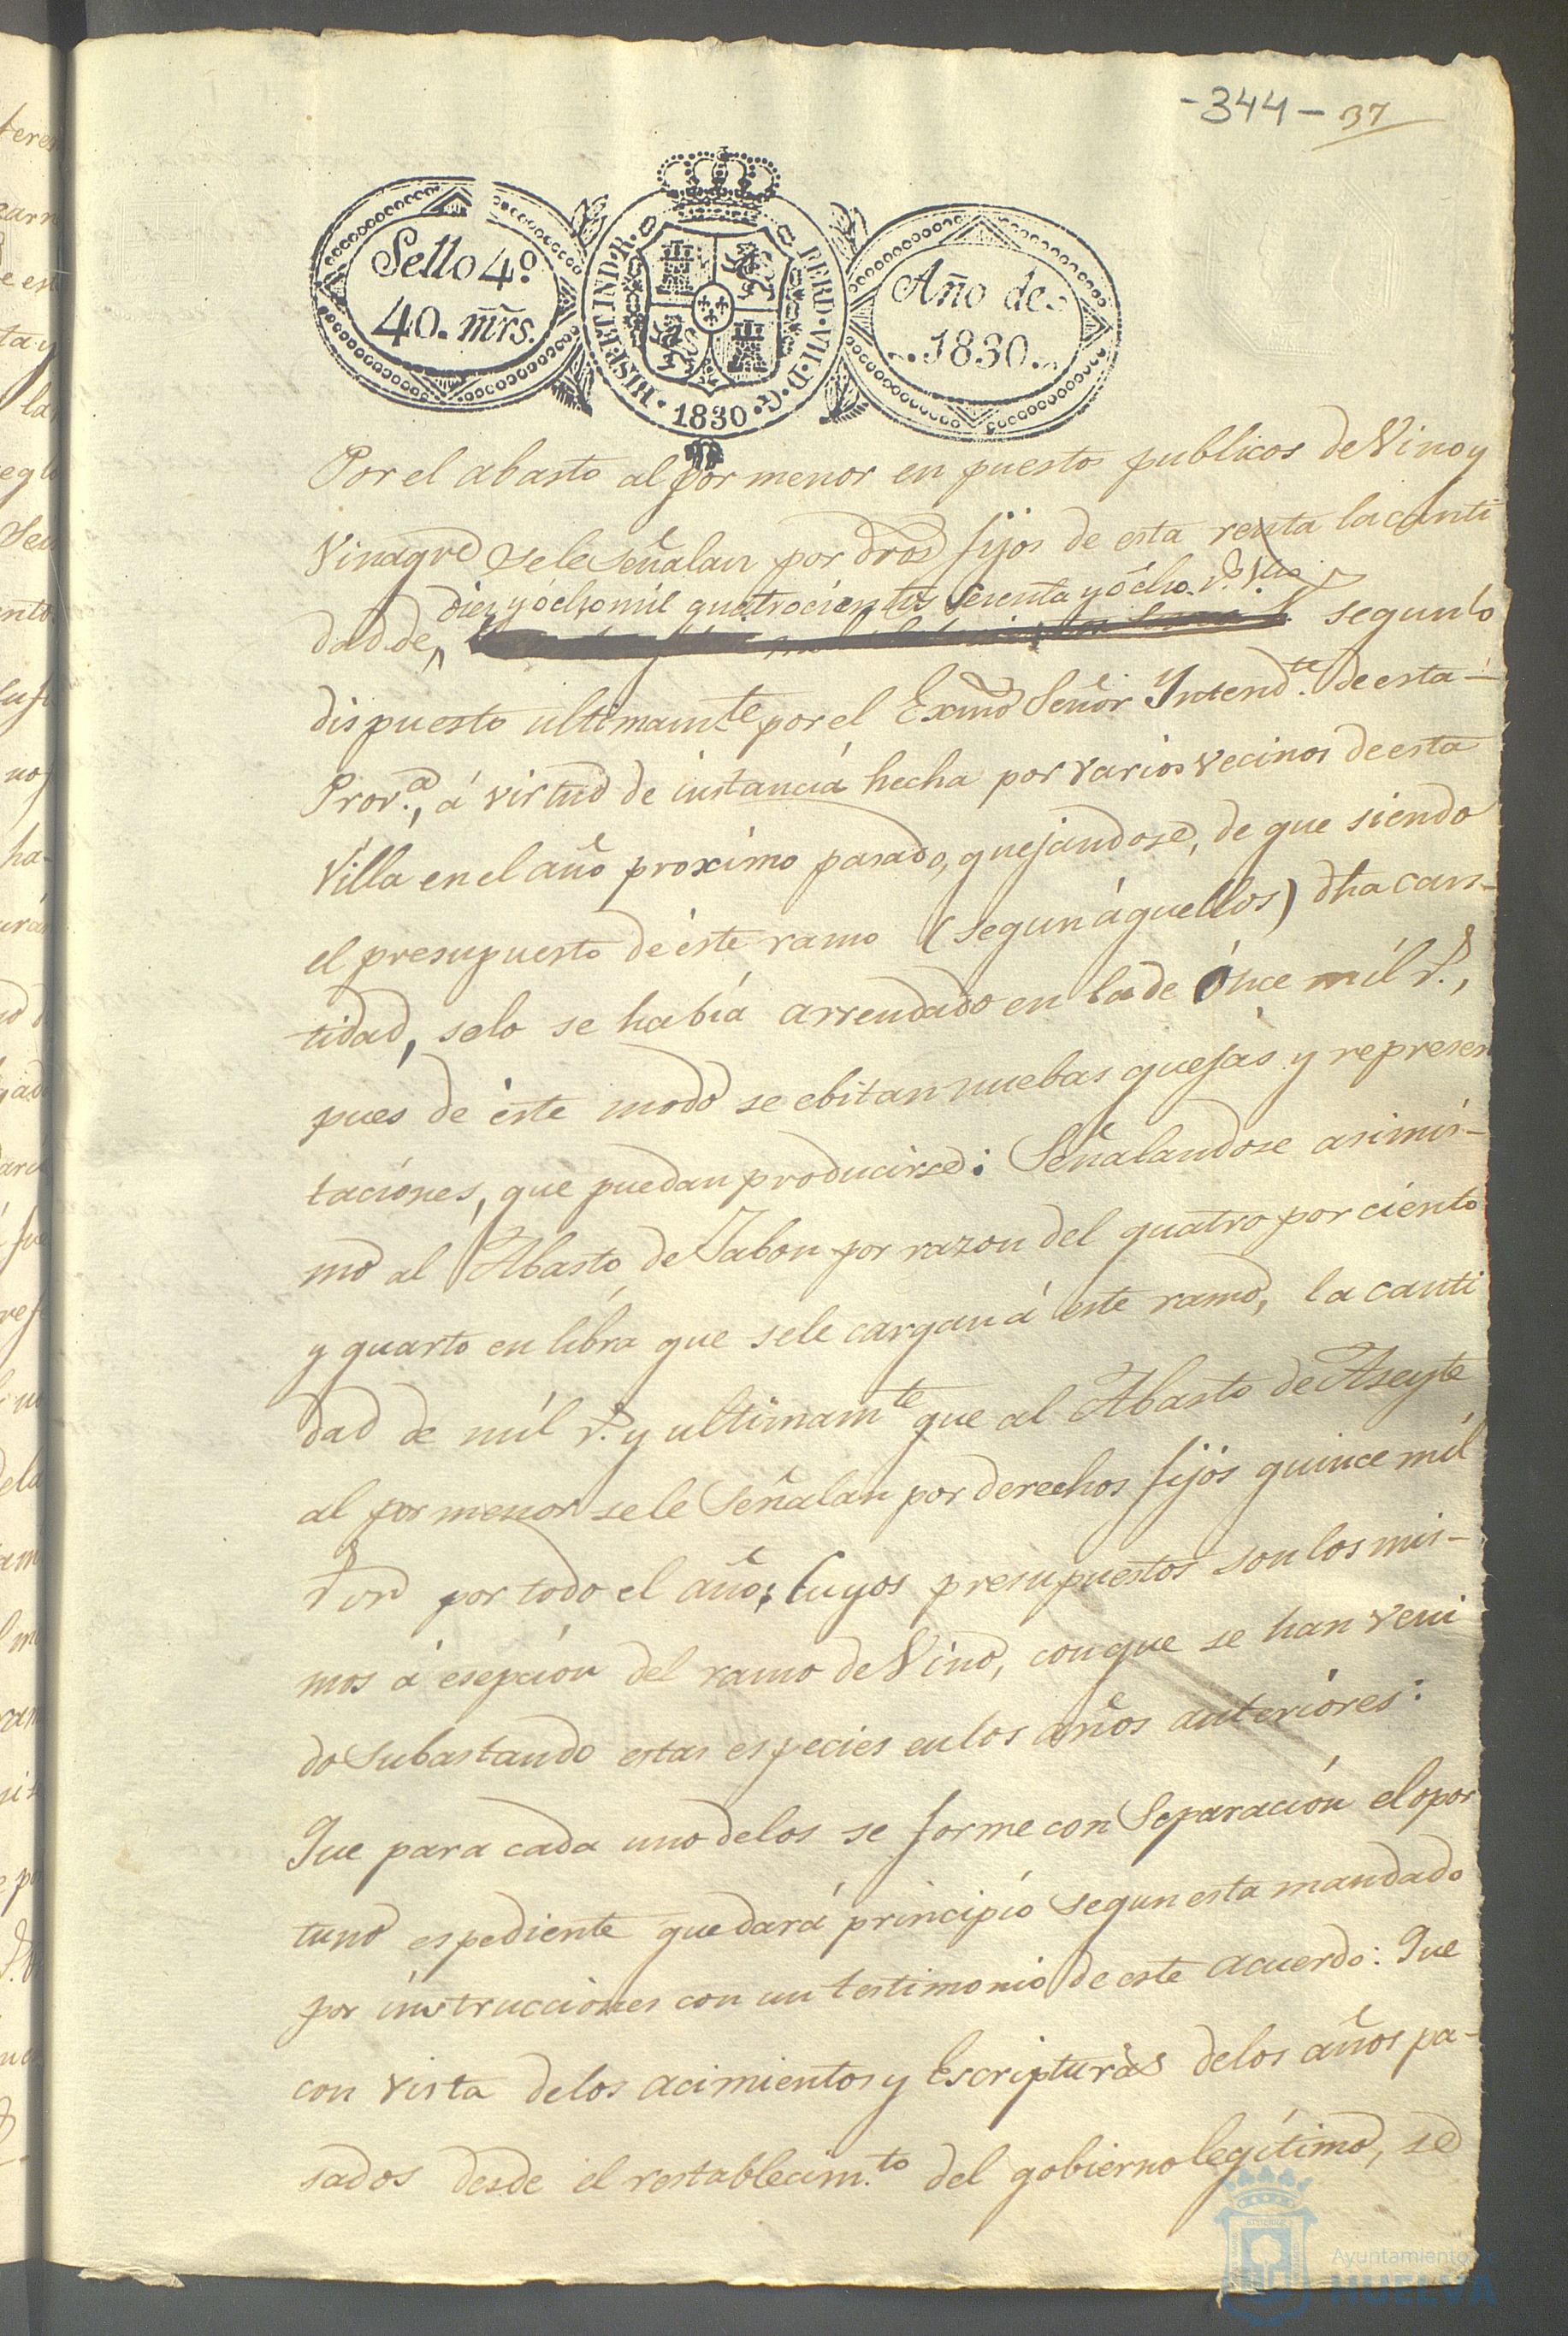 -344- 37
Sello 4º
40. mrs.
HISP. ET IND. R. FERD. VII. D. G. 1830
Año de
1830
Por el abasto al por menor en puestos publicos de Vino y
Vinagre se le señalan por dros fijos de esta renta la canti
diez y ócho mil quatrocientos sesenta y ócho r.s v.on
dad de, segun lo
dispuesto ultimam.te por el Exmo Señor Yntend.te de esta
Prov.a, á virtud de instancia hecha por varios vecinos de esta
Villa en el año proximo pasado, quejandose, de que siendo
el presupuesto de éste ramo (segun áquellos) dha can-
tidad, solo se había arrendado en la de ónce mil r.s,
pues de éste modo se ebitan nuebas quejas y represen
taciónes, que puedan producirse: Señalandose asimis-
mo al Abasto de Jabon por razon del quatro por ciento
y quarto en libra que sele cargan á este ramo, la canti
dad de mil r.s y ultimam.te que al Abasto de Aseyte
al por menor se le Señalan por derechos fijos quince mil
r.s von por todo el año; Cuyos presupuestos son los mis-
mos á esepción del ramo de Vino, con que se han veni
do Subastando estas especies en los años anterióres:
Que para cada uno delos se forme con Separación el opor
tuno espediente que dará principio segun esta mandado
por instrucciónes con un testimonio de este acuerdo: Que
con vista delos acimientos y Escripturas delos años pa-
sados desde el restablecim.to del gobierno legítimo, se
Ayuntamiento de
HUELVA